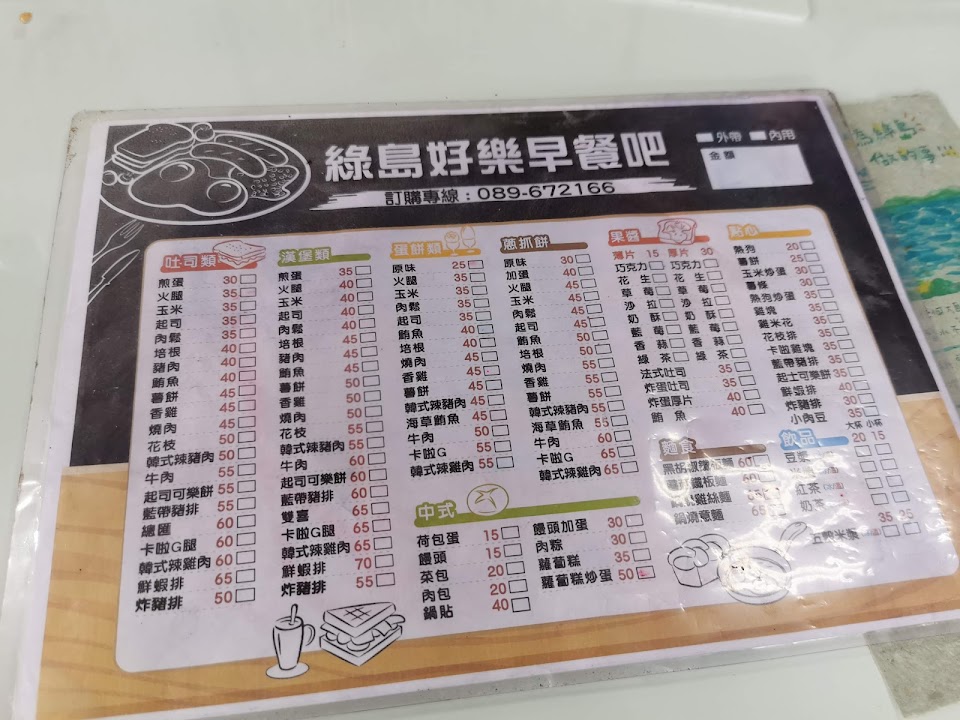 綠島好樂早餐吧
訂購專線：089-672166
外帶 內用
金額
吐司類
煎蛋 30
火腿 35
玉米 35
起司 35
肉鬆 35
培根 40
豬肉 40
鮪魚 40
薯餅 45
香雞 45
燒肉 45
花枝 50
韓式辣豬肉 50
牛肉 50
起司可樂餅 55
藍帶豬排 55
總匯 60
卡啦G腿 60
韓式辣雞肉 60
鮮蝦排 65
炸豬排 50
漢堡類
煎蛋 35
火腿 40
玉米 40
肉鬆 40
起司 40
培根 45
豬肉 45
鮪魚 45
薯餅 50
香雞 50
燒肉 50
花枝 55
韓式辣豬肉 55
牛肉 60
起司可樂餅 60
藍帶豬排 60
雙喜 65
卡啦G腿 65
韓式辣雞肉 65
鮮蝦排 70
炸豬排 55
蛋餅類
原味 25
火腿 30
玉米 35
肉鬆 35
起司 35
鮪魚 40
培根 40
燒肉 40
香雞 45
薯餅 45
韓式辣豬肉 45
海草鮪魚 45
牛肉 50
卡啦G 55
韓式辣雞肉 55
蔥抓餅
原味 30
加蛋 40
火腿 45
玉米 45
肉鬆 45
起司 45
鮪魚 50
培根 50
燒肉 50
香雞 55
薯餅 55
韓式辣豬肉 55
海草鮪魚 55
牛肉 60
卡啦G 65
韓式辣雞肉 65
果醬
薄片 15 厚片 30
巧克力 巧克力
花生 花生
草莓 草莓
沙拉 沙拉
奶酥 奶酥
藍莓 藍莓
香蒜 香蒜
綠茶 綠茶
法式吐司 35
炸蛋吐司 35
炸蛋厚片 40
鮪魚 40
點心
熱狗 20
薯餅 25
玉米炒蛋 30
薯條 30
熱狗炒蛋 35
雞塊 35
雞米花 35
花枝排 35
卡啦雞塊 35
藍帶豬排 35
起士可樂餅 35
鮮蝦排 40
炸豬排 30
小肉豆 35
中式
荷包蛋 15
饅頭 15
菜包 20
肉包 20
鍋貼 40
饅頭加蛋 30
肉粽 30
蘿蔔糕 35
蘿蔔糕炒蛋 50
麵食
黑胡椒鐵板麵 60
鐵板麵 60
雞絲麵 65
鍋燒意麵 65
飲品
大杯 小杯
20 15
豆漿
紅茶
奶茶
35 25